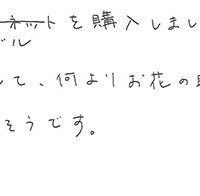 ネットを購入しまし
ブル
して、何よりお花の
そうです。